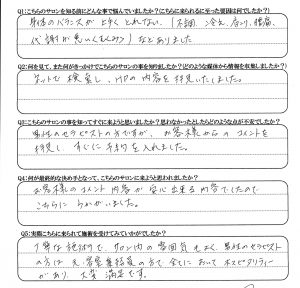 Q1:こちらのサロンを知る前にどんな事で悩んでいましたか?こちらに来られるに至った要因は何でしたか?
身体のバランスが上手くとれない。(不調、冷え、肩こり、腰痛、
代謝が悪い、むくみ)などありました。
Q2:何を見て、また何がきっかけでこちらのサロンの事を知りましたか?どのような媒体から情報を収集しましたか?
ネットで検索し、HPの内容を拝見いたしました。
Q3:こちらのサロンの事を知ってすぐに来ようと思いましたか?思わなかったとしたらどのような点が不安でしたか?
男性のセラピストの方ですが、お客様からのコメントを
拝見し、すぐに予約を入れました。
Q4:何が最終的な決め手となって、こちらのサロンに来ようと思われましたか?
お客様のコメント内容が安心出来る内容でしたので
こちらに うかがいました。
Q5:実際こちらに来られて施術を受けてみていかがでしたか?
丁寧な施術で、サロン内の雰囲気もよく、男性のセラピスト
の方は元 客室乗務員の方で全てにおいてホスピタリティー
があり、大変満足です。